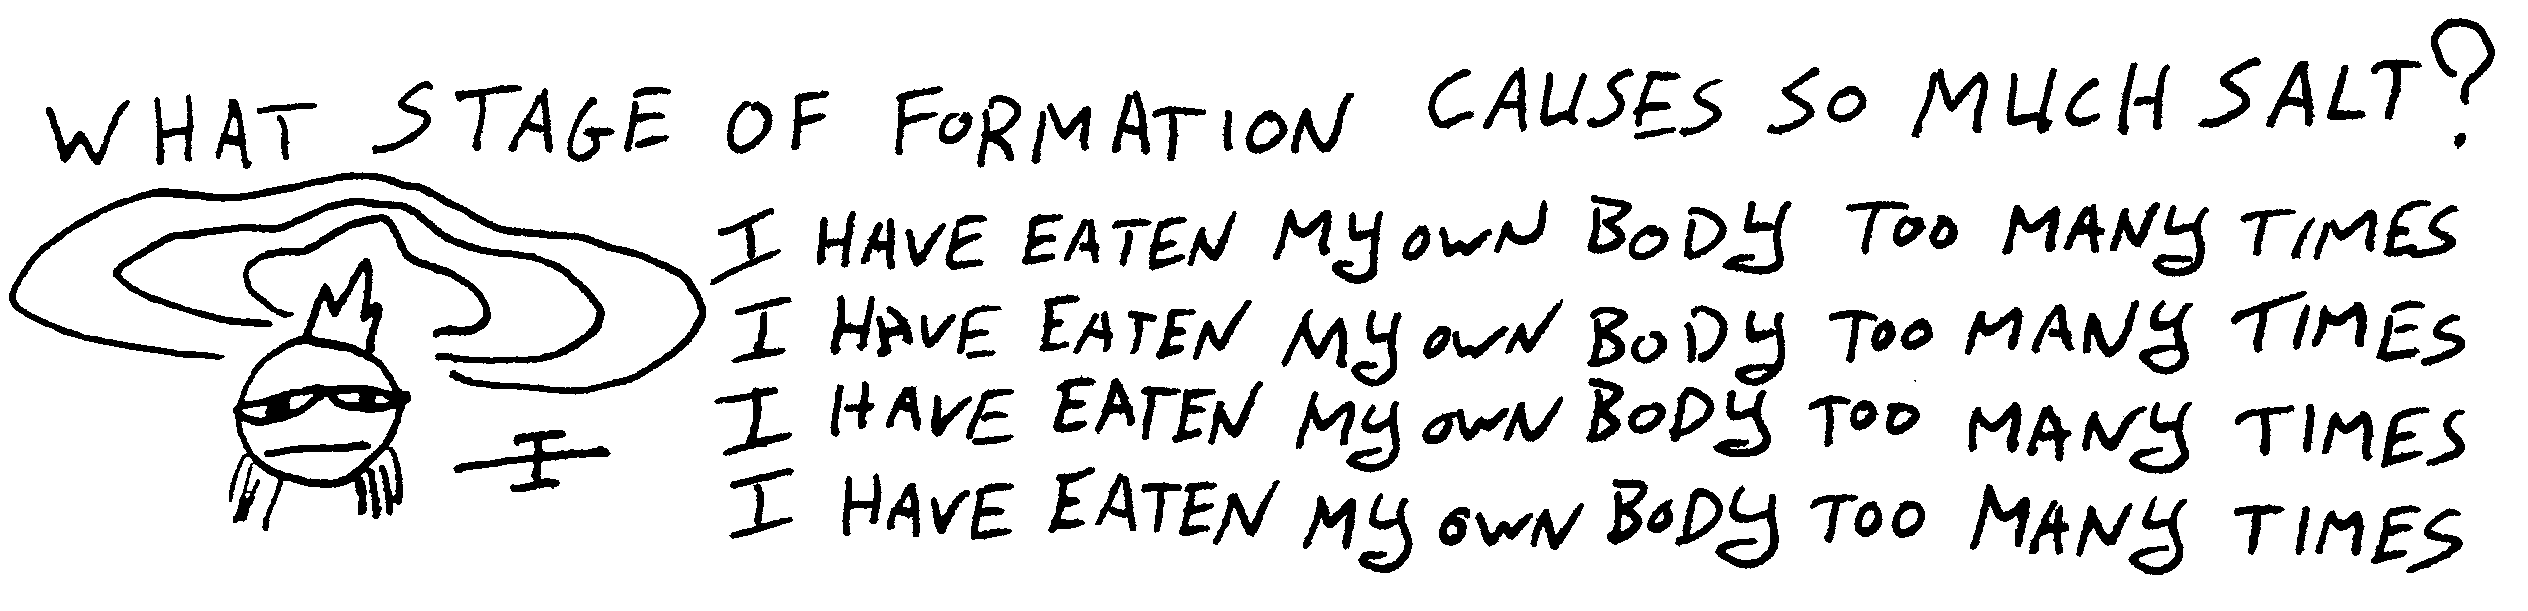 WHAT STAGE OF FORMATION CAUSES SO MUCH SALT?
I HAVE EATEN MY OWN BODY TOO MANY TIMES
I HAVE EATEN MY OWN BODY TOO MANY TIMES
I HAVE EATEN MY OWN BODY TOO MANY TIMES
I
I HAVE EATEN MY OWN BODY TOO MANY TIMES